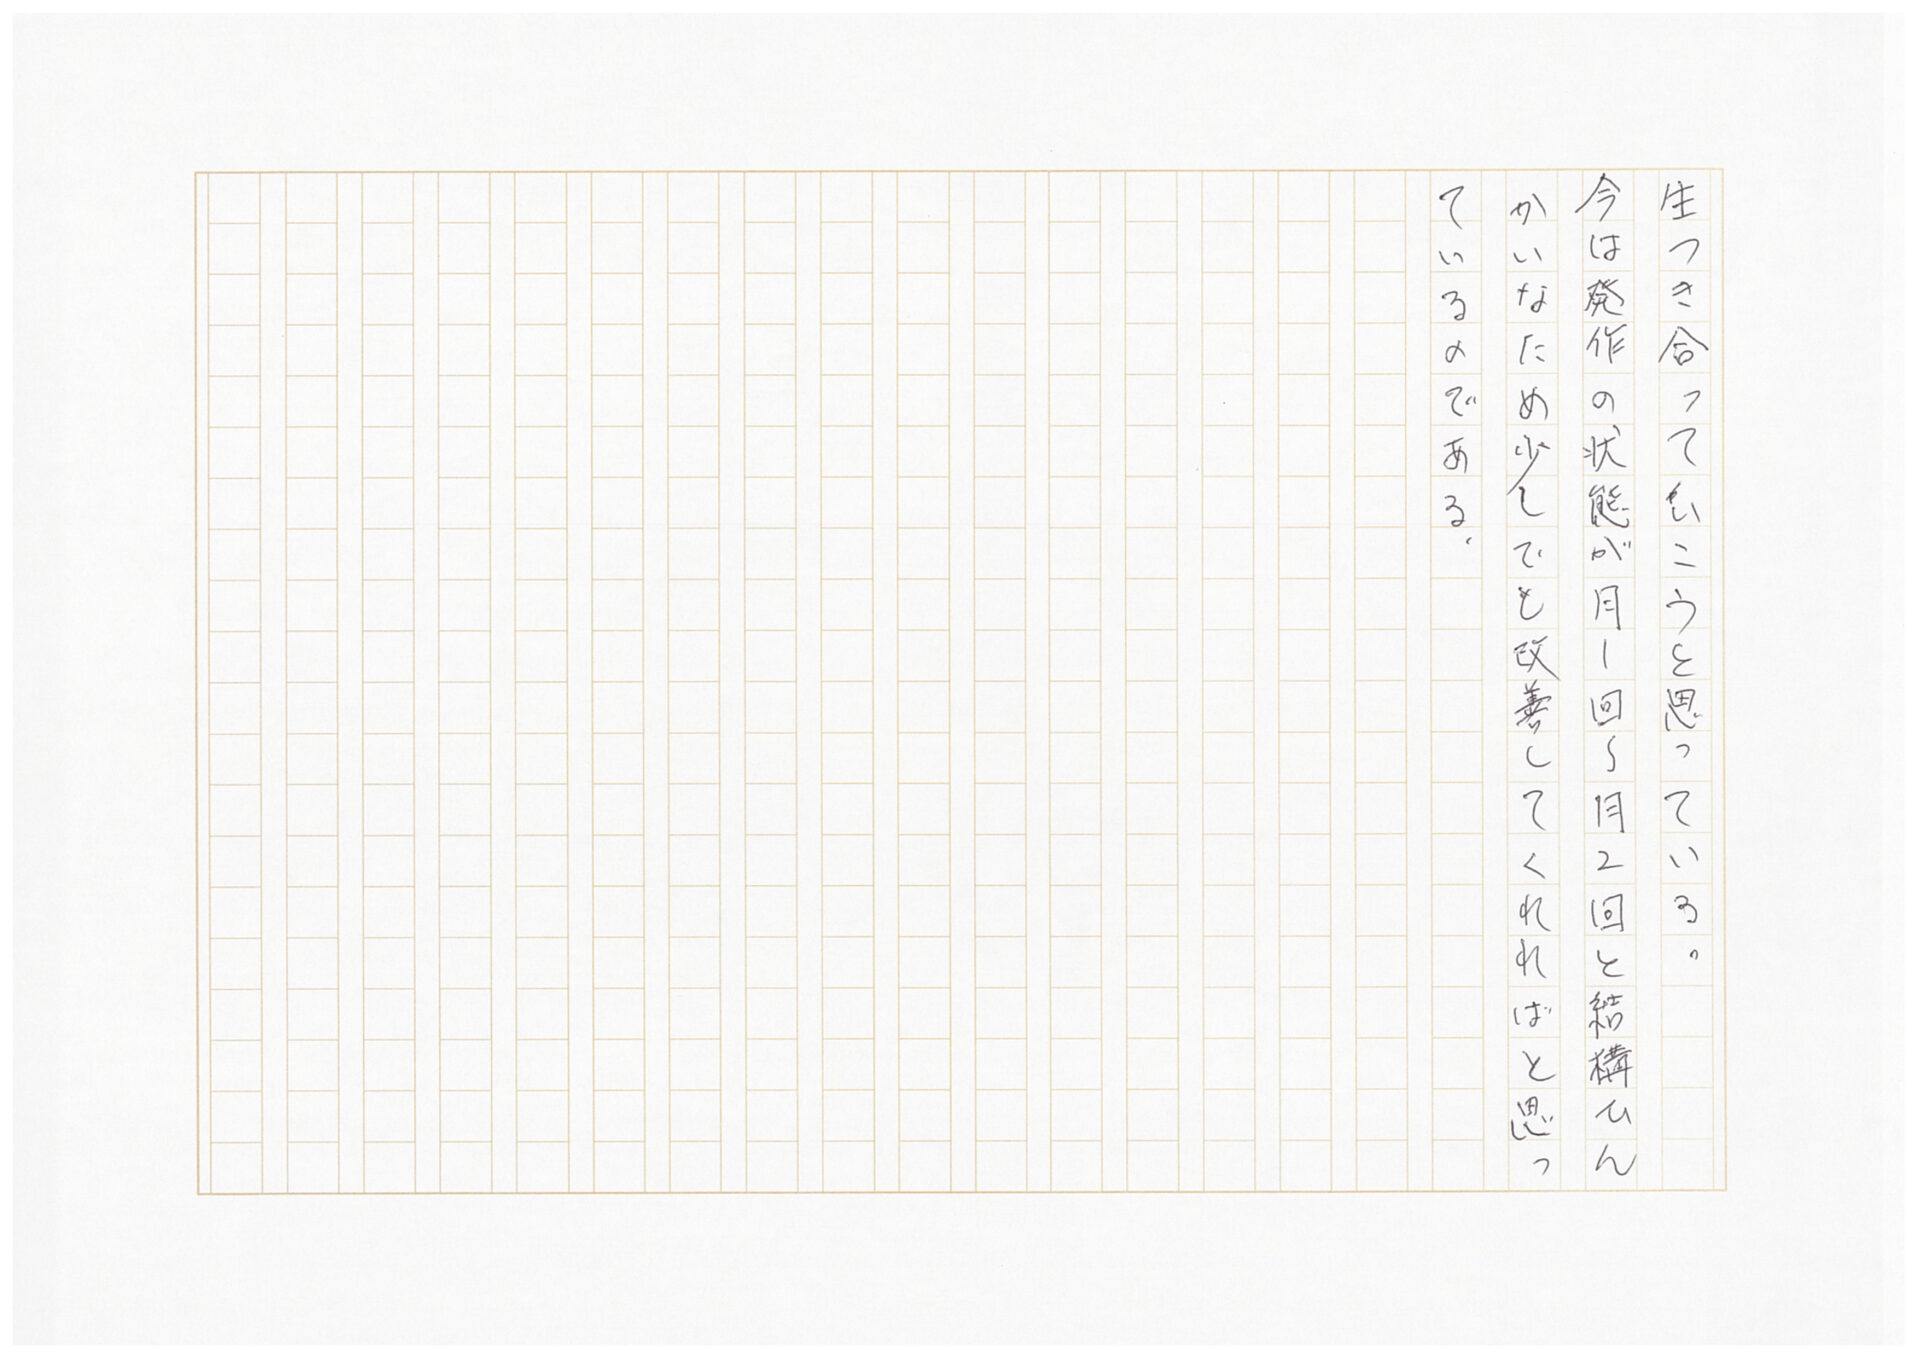 生つき合っていこうと思っている。
今は発作の状態が月1回～月2回と結構ひん
かいなため少しでも改善してくれればと思っ
ているのである。